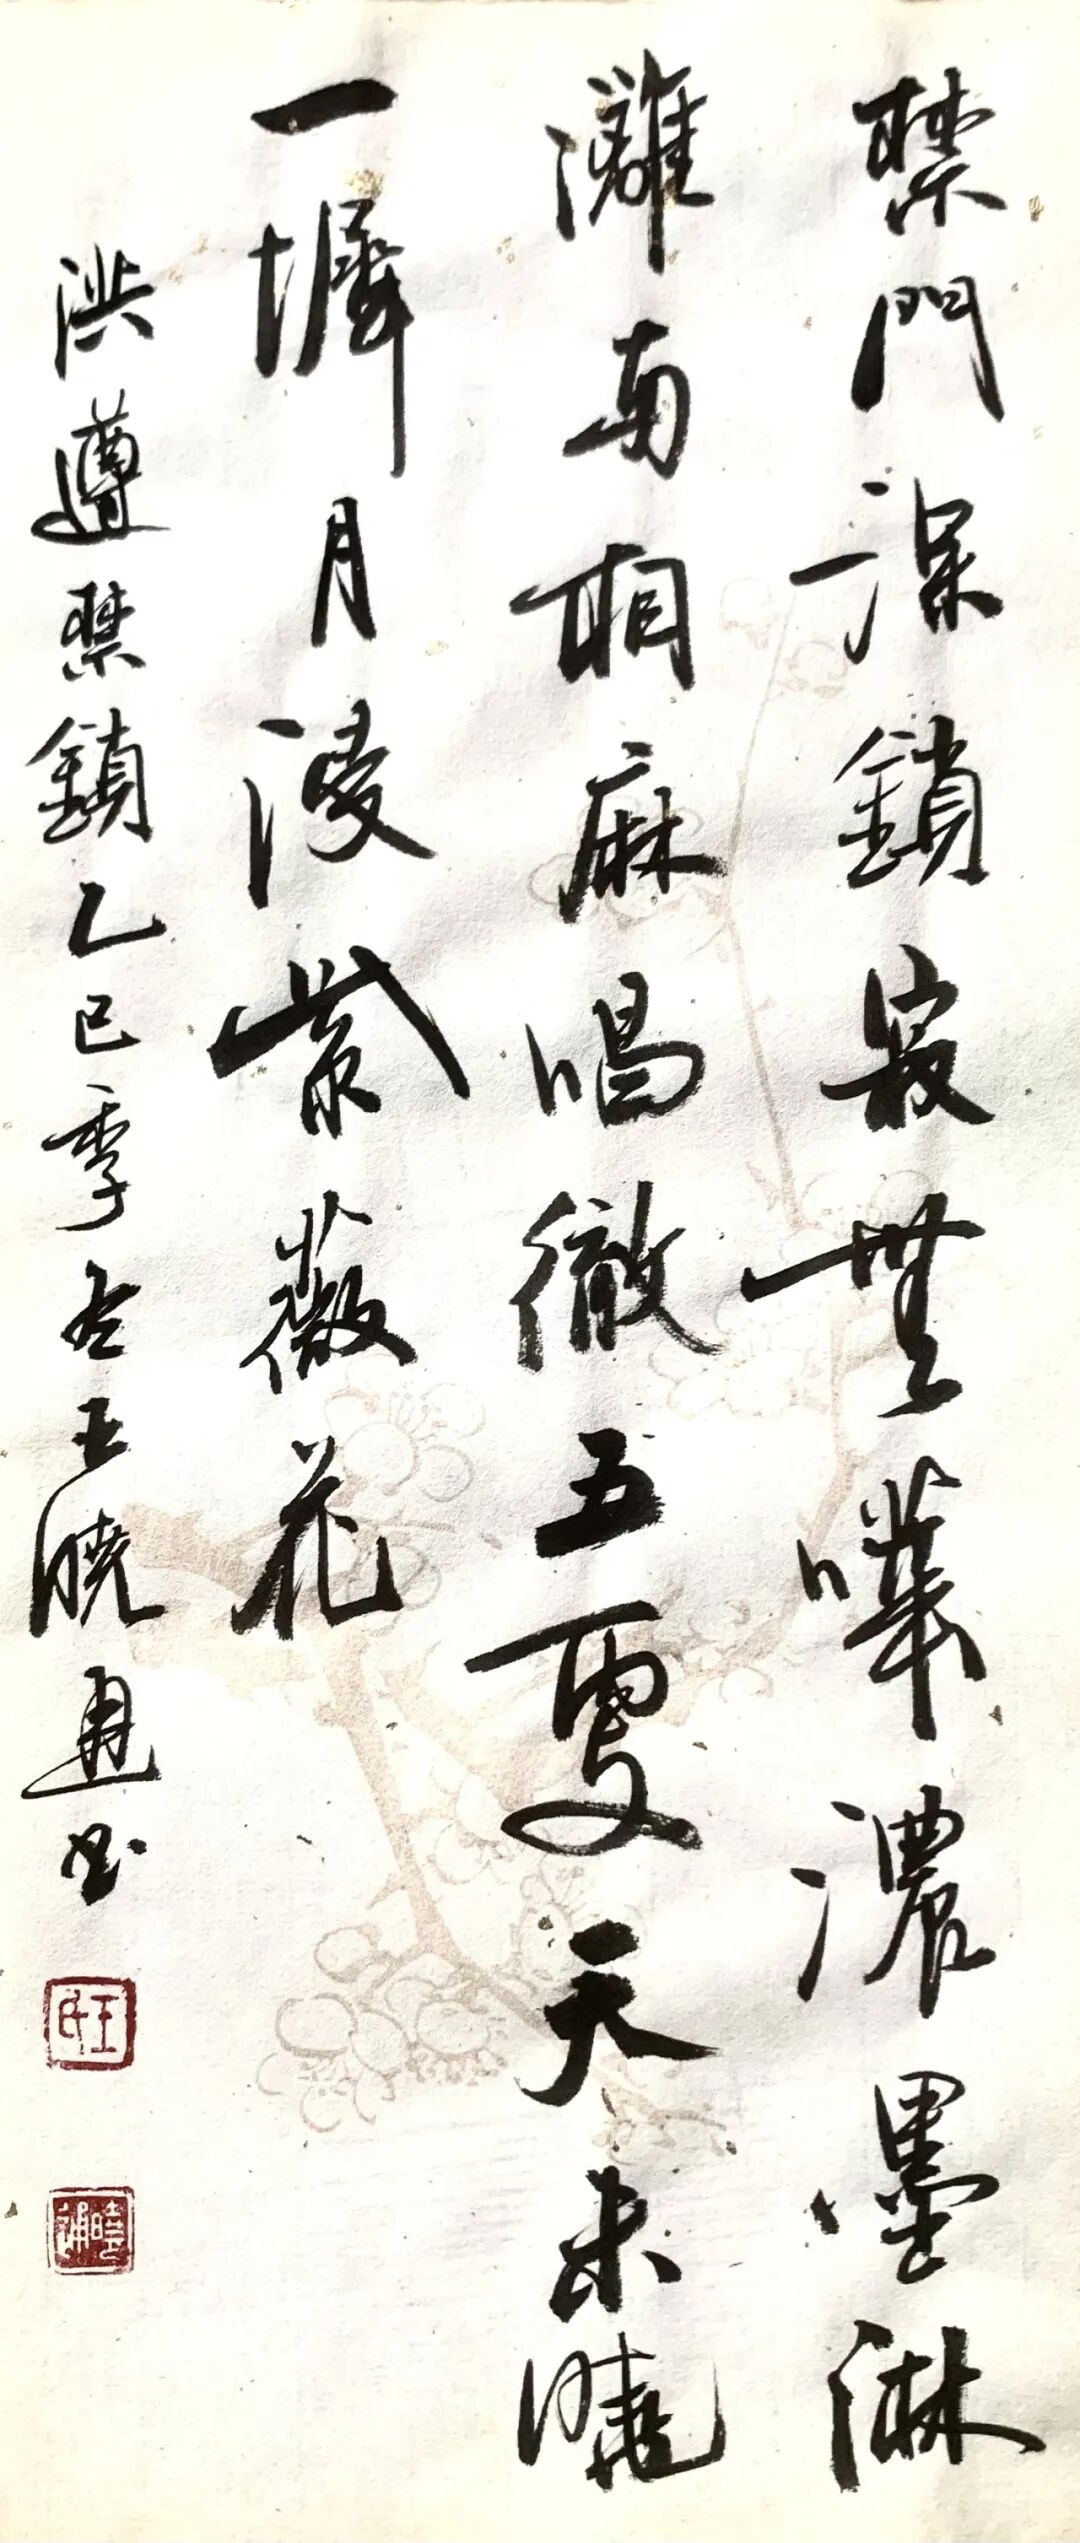 禁門深鎖寂無嘩濃墨淋
灕兩相麻唱徹五更天未曉
一墀月浸紫薇花
洪遵禁鎖乙巳季冬王曉通书